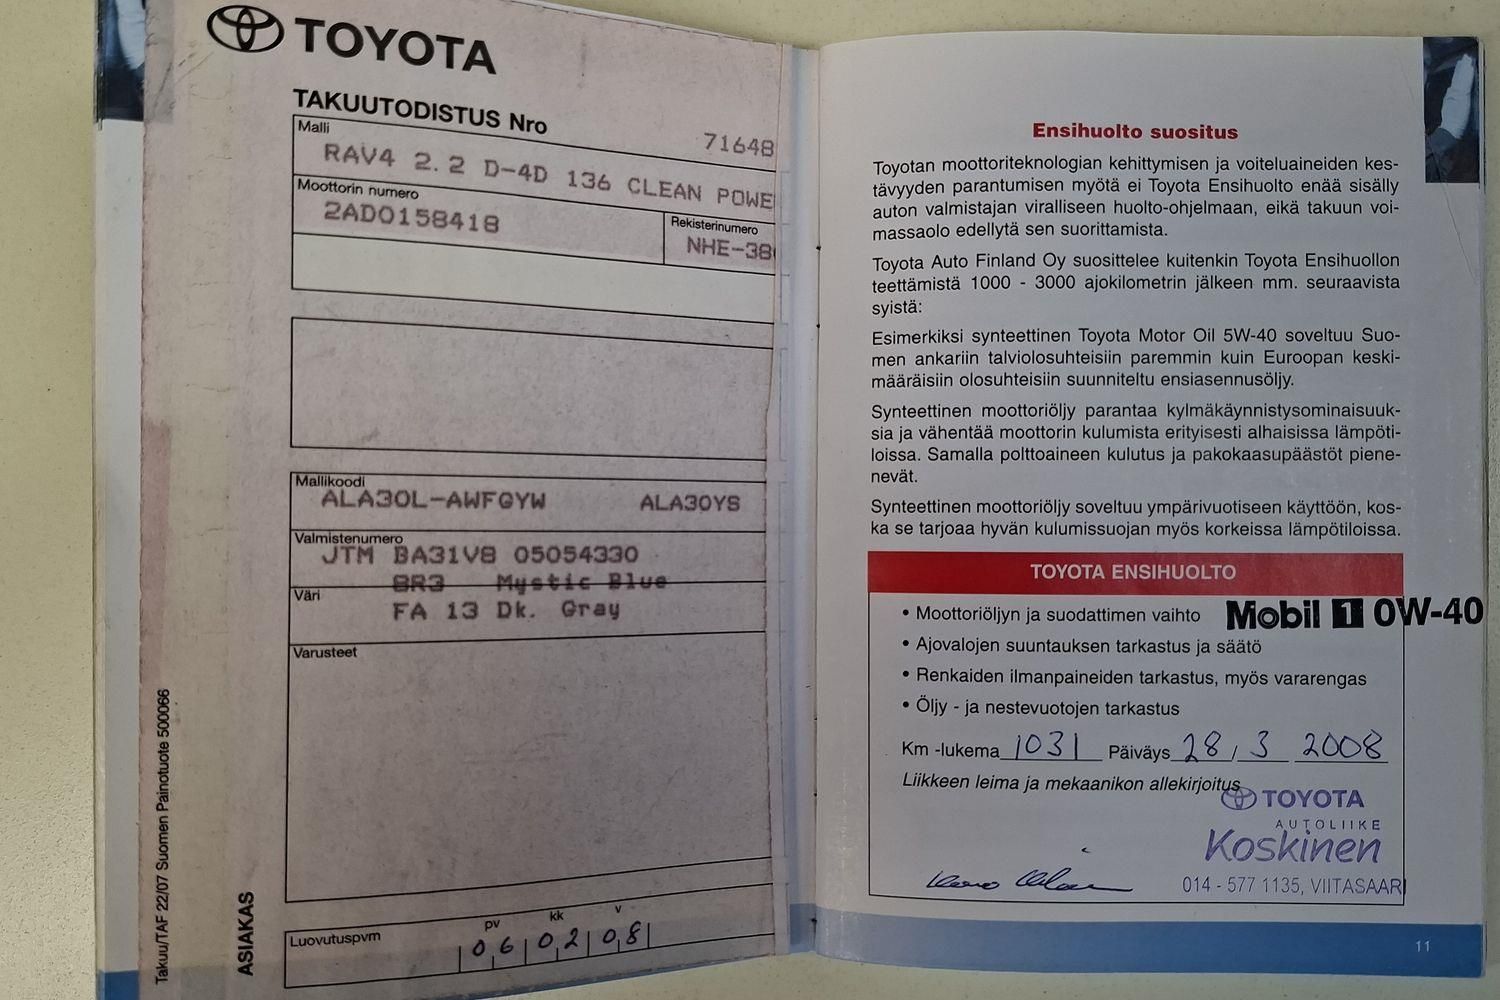 TOYOTA
TAKUUTODISTUS Nro
71648
Malli
RAV4 2.2 D-4D 136 CLEAN POWE
Moottorin numero
2AD0158418
Rekisterinumero
NHE-38
Mallikoodi
ALA30L-AWFGYW ALA30YS
Valmistenumero
JTM BA31V8 05054330
8R3 Mystic Blue
Väri
FA 13 Dk. Gray
Varusteet
pv kk v
Luovutuspvm 06 02 08
Takuu/TAF 22/07 Suomen Painotuote 500066
ASIAKAS
Ensihuolto suositus
Toyotan moottoriteknologian kehittymisen ja voiteluaineiden kes-
tävyyden parantumisen myötä ei Toyota Ensihuolto enää sisälly
auton valmistajan viralliseen huolto-ohjelmaan, eikä takuun voi-
massaolo edellytä sen suorittamista.
Toyota Auto Finland Oy suosittelee kuitenkin Toyota Ensihuollon
teettämistä 1000 - 3000 ajokilometrin jälkeen mm. seuraavista
syistä:
Esimerkiksi synteettinen Toyota Motor Oil 5W-40 soveltuu Suo-
men ankariin talviolosuhteisiin paremmin kuin Euroopan keski-
määräisiin olosuhteisiin suunniteltu ensiasennusöljy.
Synteettinen moottoriöljy parantaa kylmäkäynnistysominaisuuk-
sia ja vähentää moottorin kulumista erityisesti alhaisissa lämpöti-
loissa. Samalla polttoaineen kulutus ja pakokaasupäästöt piene-
nevät.
Synteettinen moottoriöljy soveltuu ympärivuotiseen käyttöön, kos-
ka se tarjoaa hyvän kulumissuojan myös korkeissa lämpötiloissa.
TOYOTA ENSIHUOLTO
• Moottoriöljyn ja suodattimen vaihto Mobil 1 0W-40
• Ajovalojen suuntauksen tarkastus ja säätö
• Renkaiden ilmanpaineiden tarkastus, myös vararengas
• Öljy - ja nestevuotojen tarkastus
Km -lukema 1031 Päiväys 28 / 3 2008
Liikkeen leima ja mekaanikon allekirjoitus
TOYOTA
AUTOLIIKE
Koskinen
014 - 577 1135, VIITASAARI
11